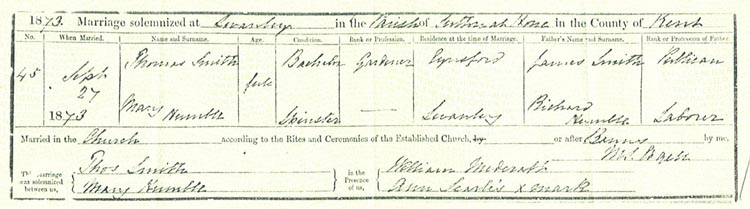 1873. Marriage solemnized at Swanley in the Parish of Sutton at Hone in the County of Kent
No. When Married. Name and Surname. Age. Condition. Rank or Profession. Residence at the time of Marriage. Father's Name and Surname. Rank or Profession of Father
45 Sept 27 1873 Thomas Smith full Bachelor Gardener Eynsford James Smith
Mary Humble Spinster — Swanley Richard Humble Laborer
Married in the Church according to the Rites and Ceremonies of the Established Church, by or after Banns by me,
This Marriage was solemnized between us, Thos. Smith in the Presence of us, William
Mary Humble Ann Searle's x mark